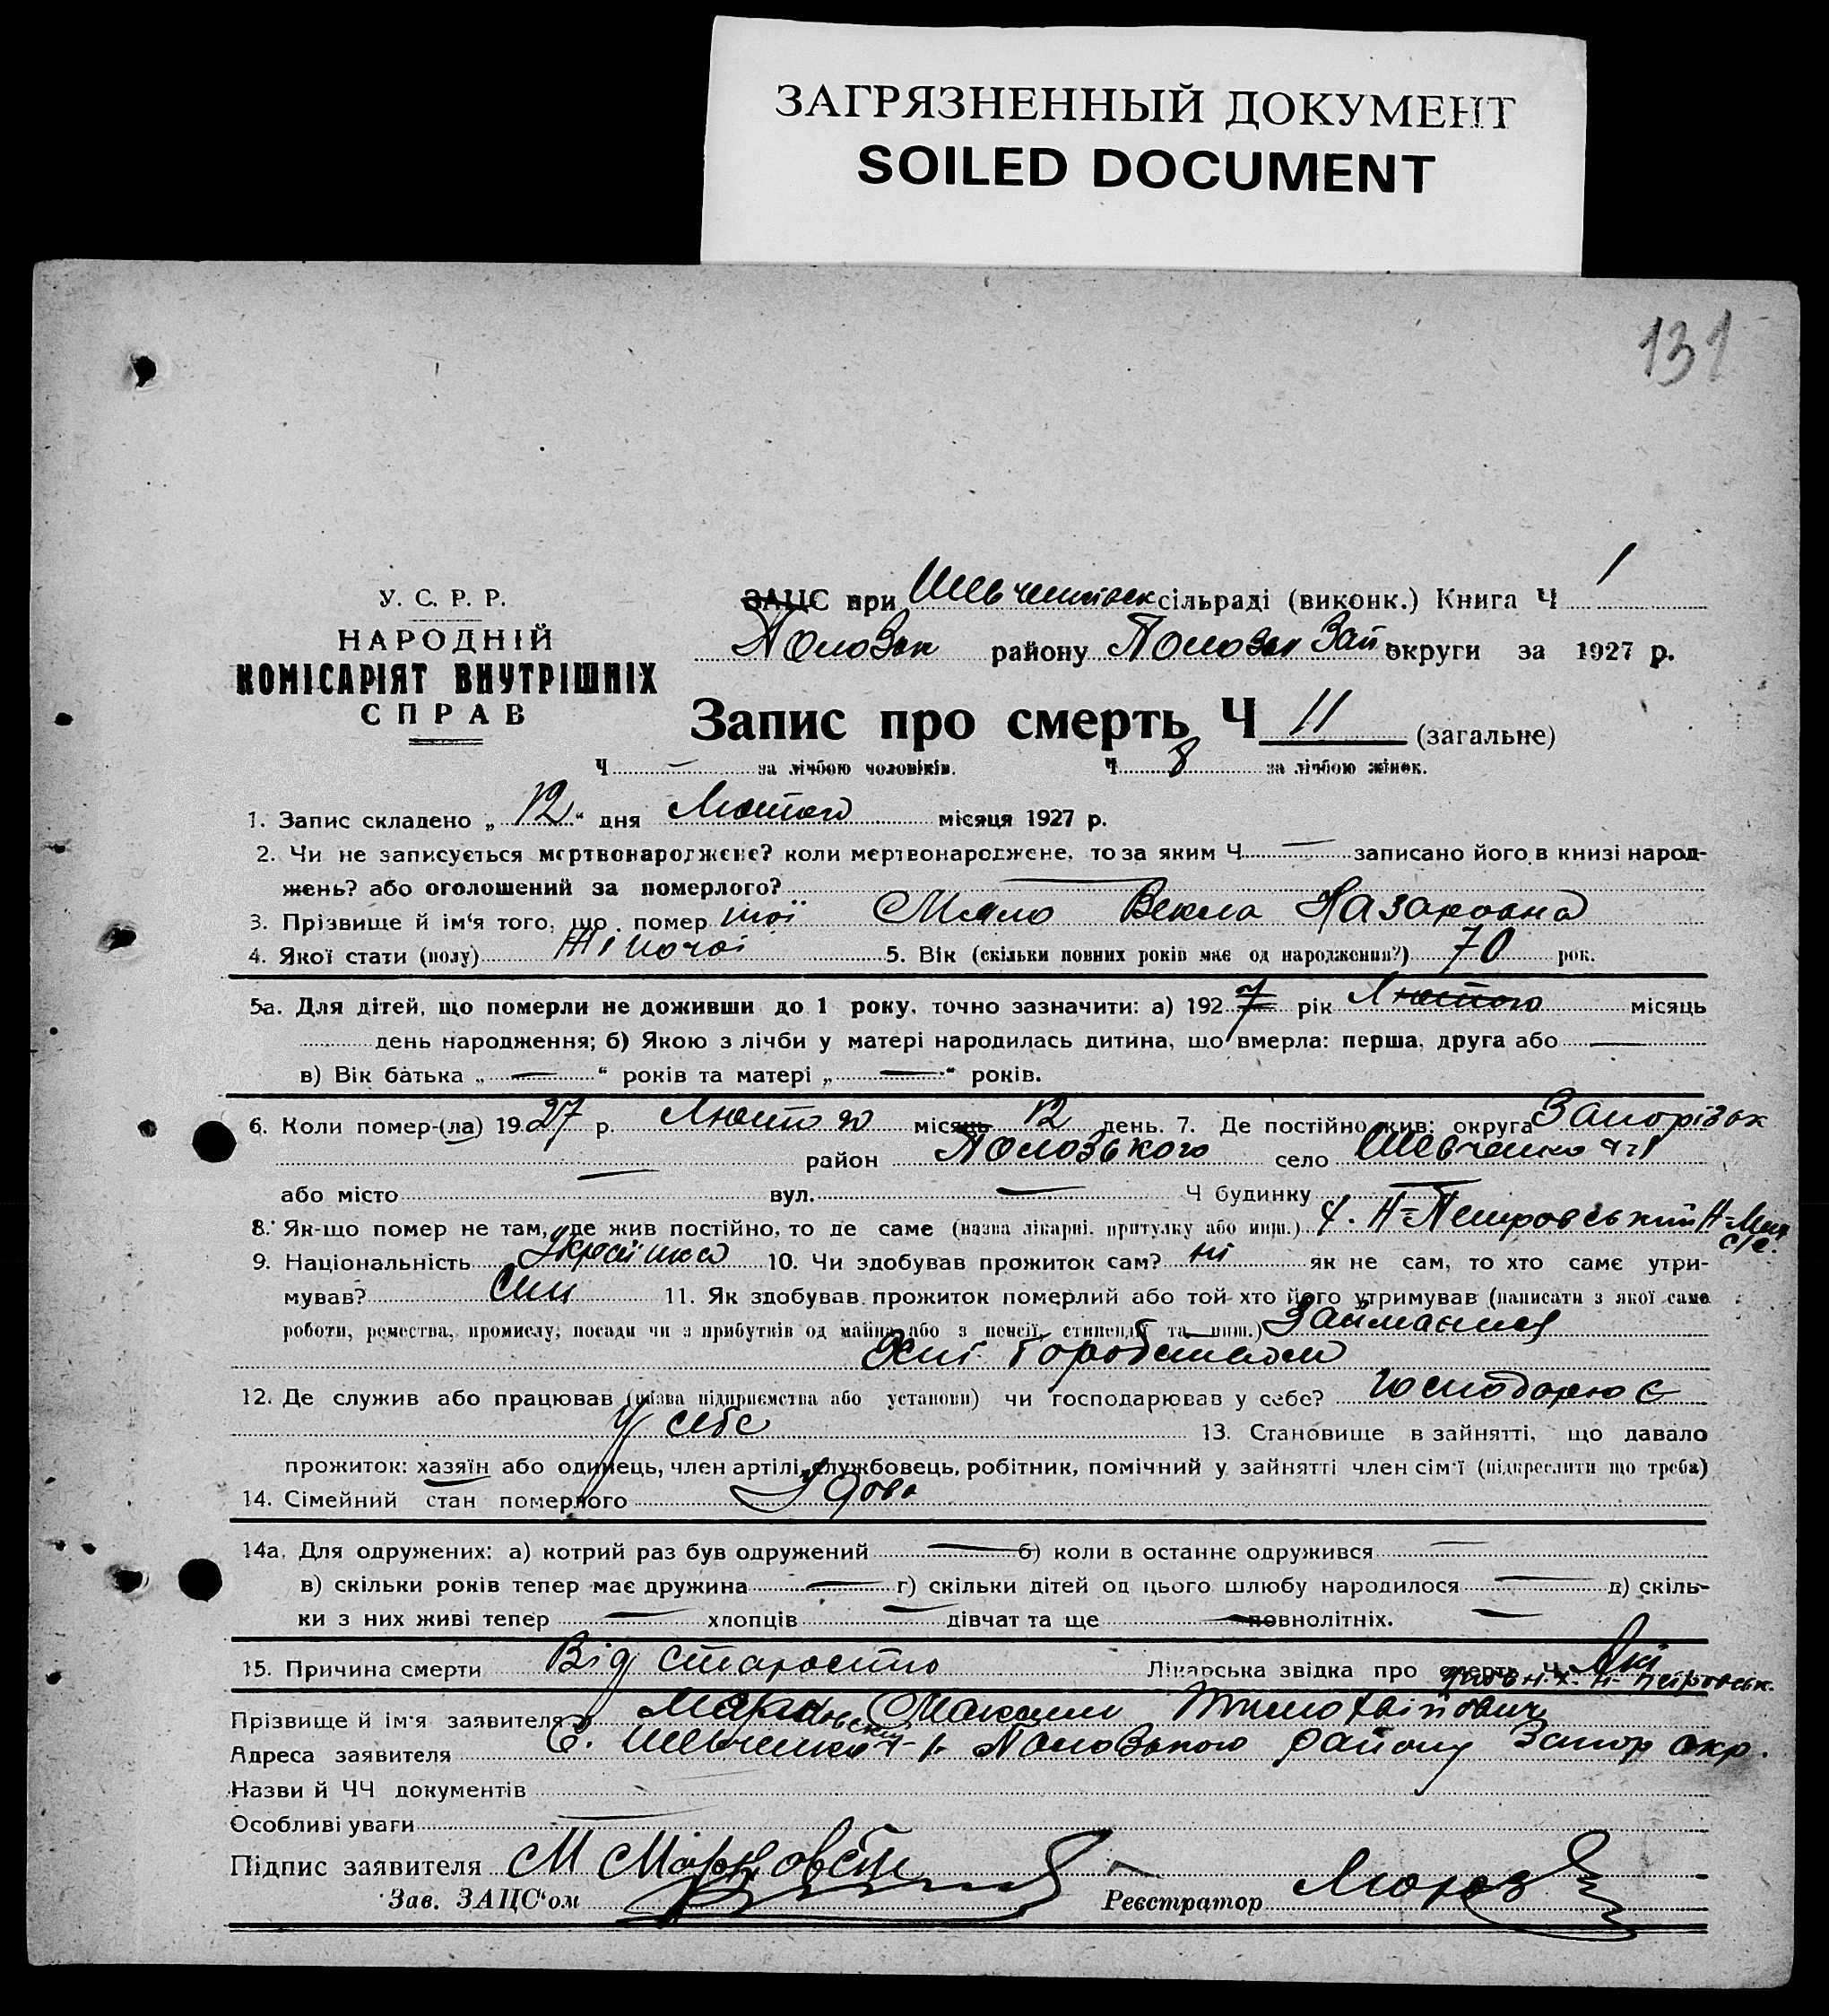 ЗАГРЯЗНЕННЫЙ ДОКУМЕНТ
SOILED DOCUMENT
131
У. С. Р. Р.
НАРОДНІЙ
КОМІСАРІЯТ ВНУТРІШНІХ
СПРАВ
ЗАЦС при Шевченківск сільраді (виконк.) Книга Ч 1
Пологівк району Зап округи за 1927 р.
Запис про смерть Ч 11 (загальне)
Ч — за лічбою чоловіків. Ч 8 за лічбою жінок.
1. Запис складено „ 12 “ дня Лютого місяця 1927 р.
2. Чи не записується мертвонароджене? коли мертвонароджене, то за яким Ч — записано його в книзі народ-
жень? або оголошений за померлого? —
3. Прізвище й ім‘я того, що помер шої Векла Назаровна
4. Якої стати (полу) Жіночої 5. Вік (скільки повних років має од народження?) 70 рок.
5а. Для дітей, що померли не доживши до 1 року, точно зазначити: а) 192 7 рік Лютого місяць
день народження; б) Якою з лічби у матері народилась дитина, що вмерла: перша, друга або —
в) Вік батька „ — “ років та матері „ — “ років.
6. Коли помер-(ла) 19 27 р. Лютого місяць 12 день. 7. Де постійно жив: округа Запорізьк
— район Пологського село Шевченко ч 1
або місто вул. — Ч будинку —
8. Як-що помер не там, де жив постійно, то де саме (назва лікарні, притулку або инш.) Н-Петровський
9. Національність Українка 10. Чи здобував прожиток сам? ні як не сам, то хто саме утри-
мував? Син 11. Як здобував прожиток померлий або той хто його утримував (написати з якої саме
роботи, ремества, промислу, посади чи з прибутків од майна або з пенсії, стипендії та инш.) Займаєшся
12. Де служив або працював (назва підприємства або установи) чи господарював у себе? господарює
у себе 13. Становище в зайнятті, що давало
прожиток: хазяїн або одинець, член артілі, службовець, робітник, помічний у зайнятті член сім‘ї (підкреслити що треба)
14. Сімейний стан померлого Удова
14а. Для одружених: а) котрий раз був одружений — б) коли в останнє одружився —
в) скільки років тепер має дружина — г) скільки дітей од цього шлюбу народилося — д) скіль-
ки з них живі тепер — хлопців — дівчат та ще — повнолітніх. —
15. Причина смерти Від старости Лікарська звідка про смерть Ч
Прізвище й ім‘я заявителя Максим Тимофвійович
Адреса заявителя с. Шевченко ч-1. Пологського району Запор окр.
Назви й ЧЧ документів
Особливі уваги —
Підпис заявителя М
Зав. ЗАЦС‘ом Реєстратор